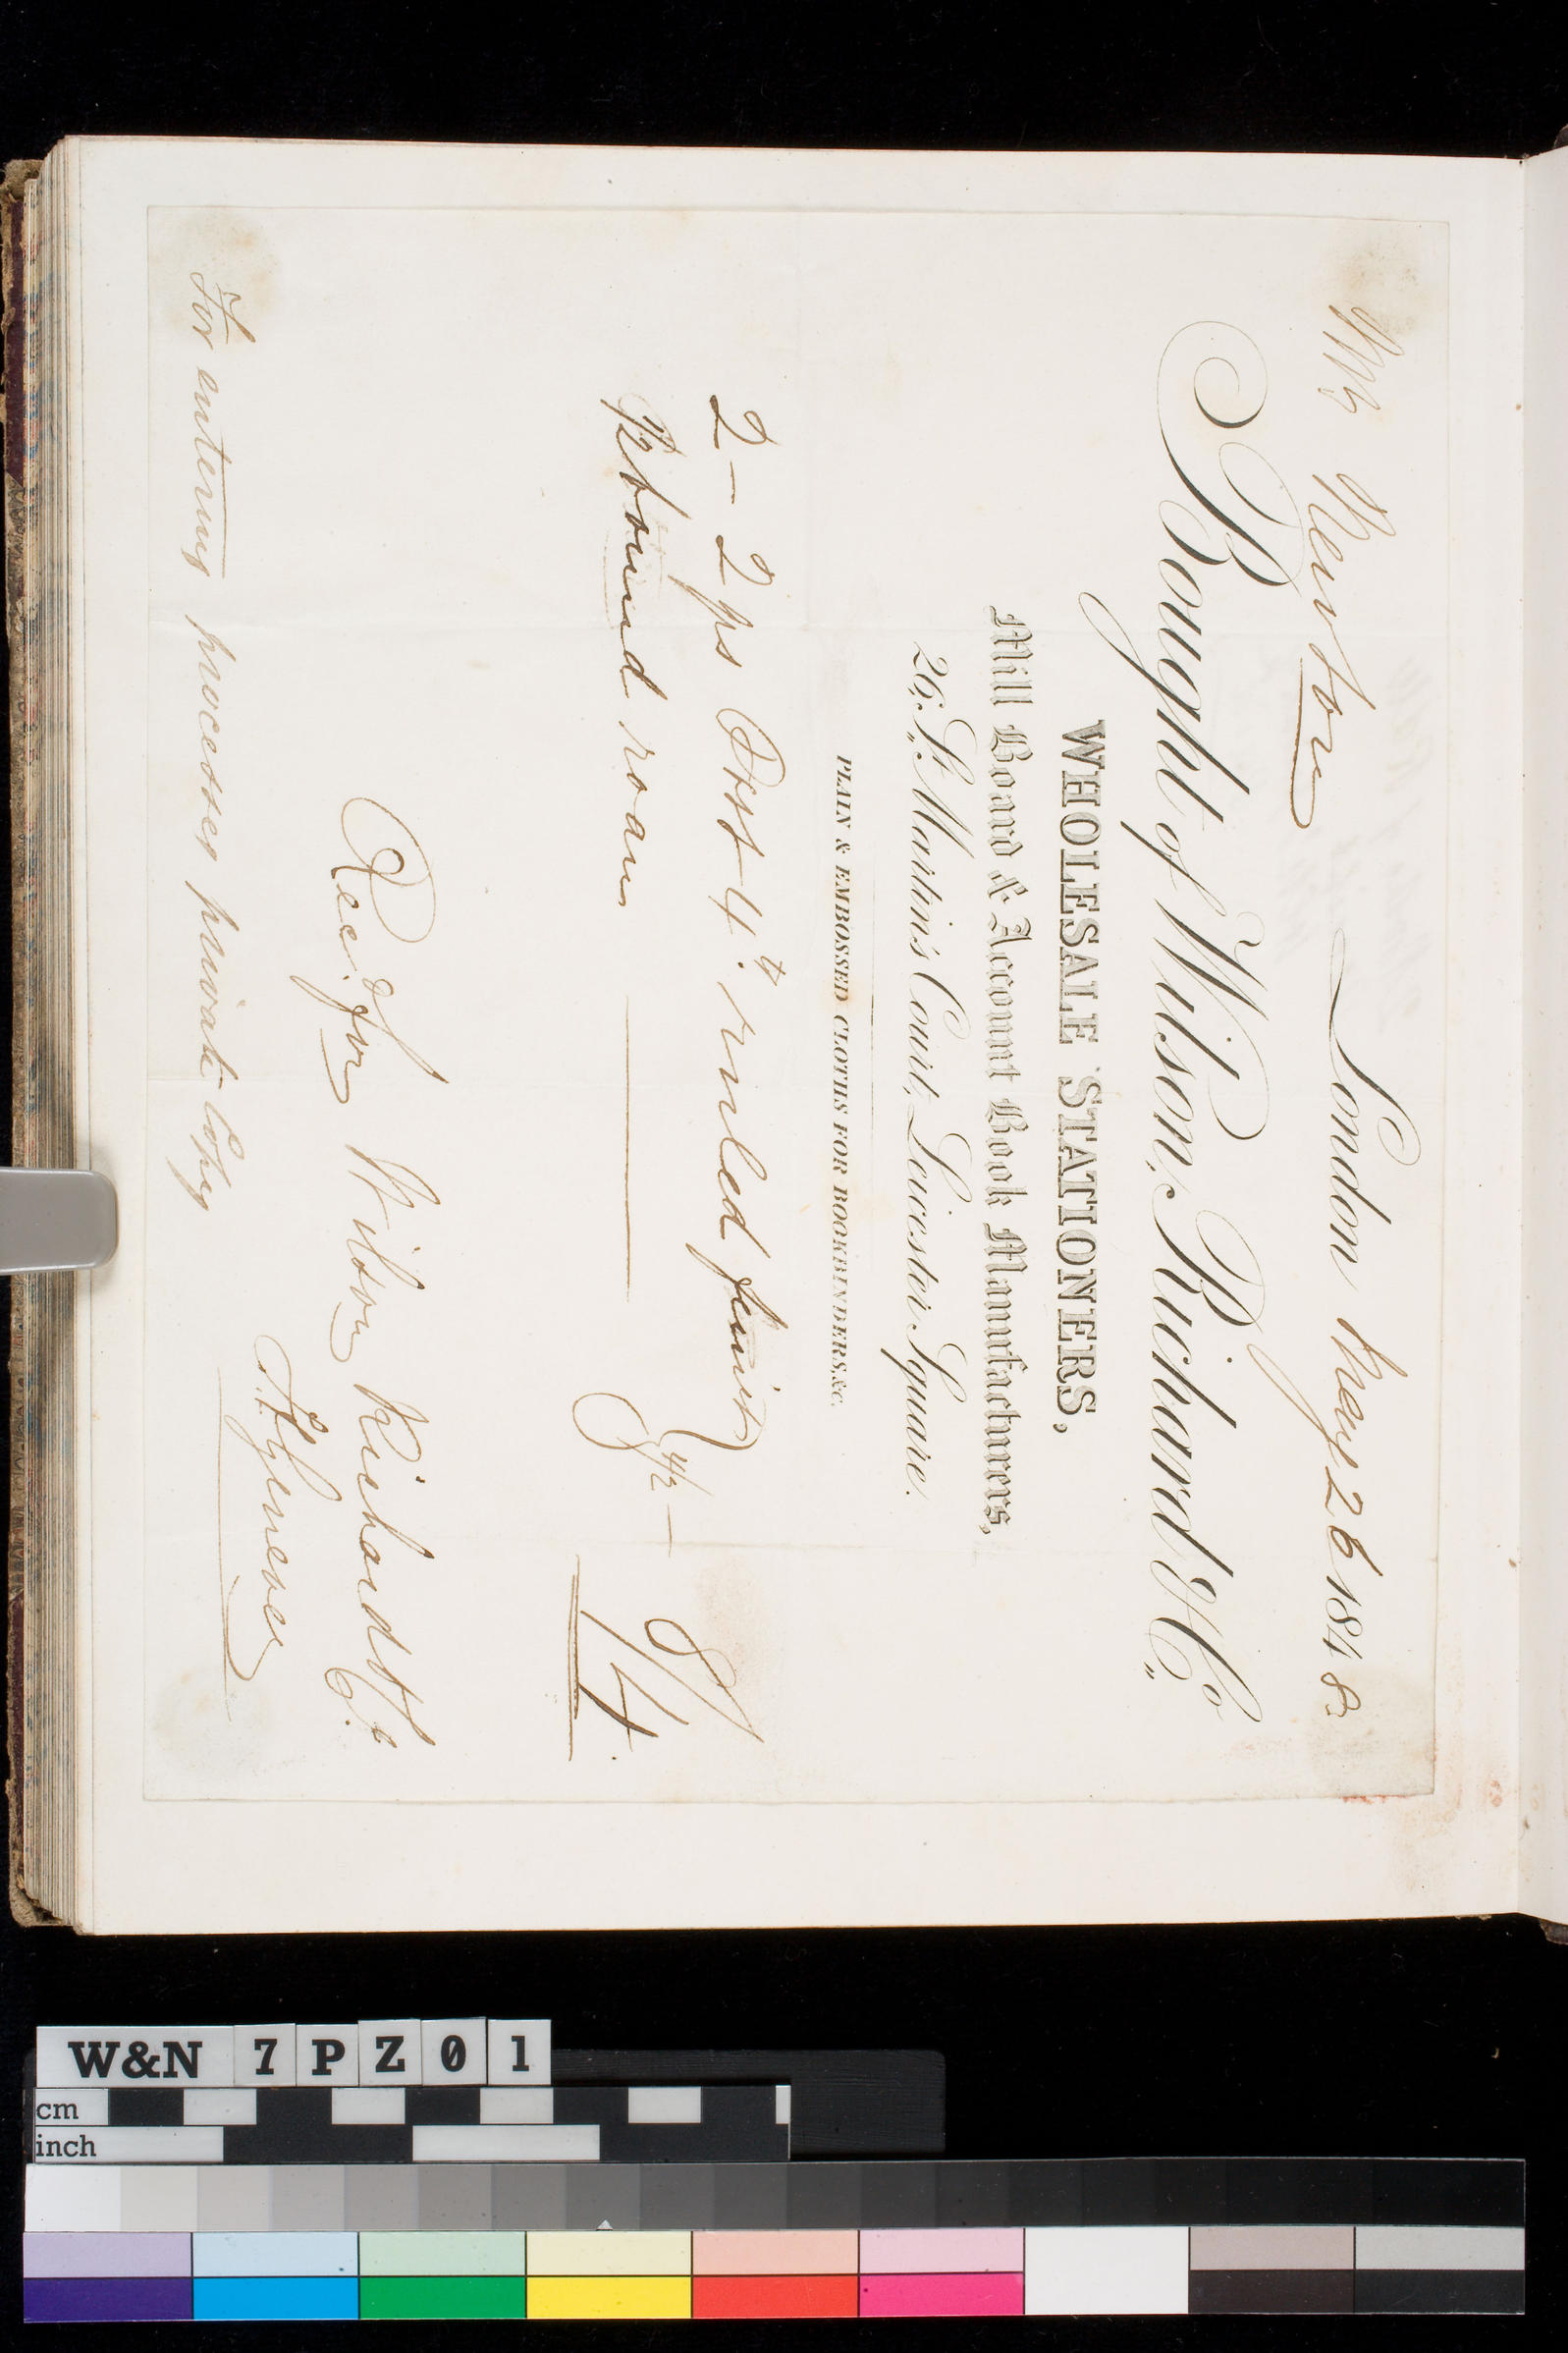 London May 26 1848
Mr Newton
Bought of Wilson, Richard & Co.
WHOLESALE STATIONERS,
Mill Board & Account Book Manufacturers,
26, St. Martin's Court, Leicester Square.
PLAIN & EMBOSSED CLOTHS FOR BOOKBINDERS, &c.
2 - 2 ps Post 4to ruled faint
½ bound roan 4/2 — 8/4
Recd for Wilson Richard & Co.
For entering processes private Copy
W&N 7PZ01
cm
inch